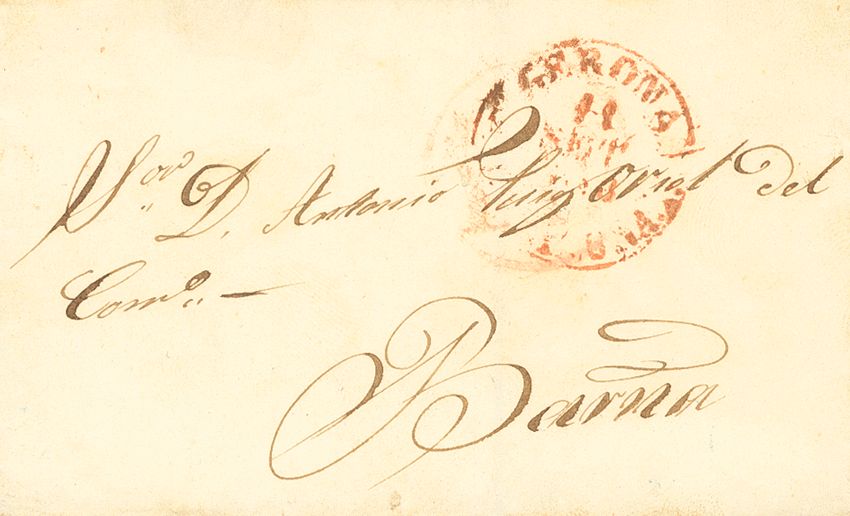 GERONA
11
Sor. D. Antonio Puig oriol del
Como. —
Barña